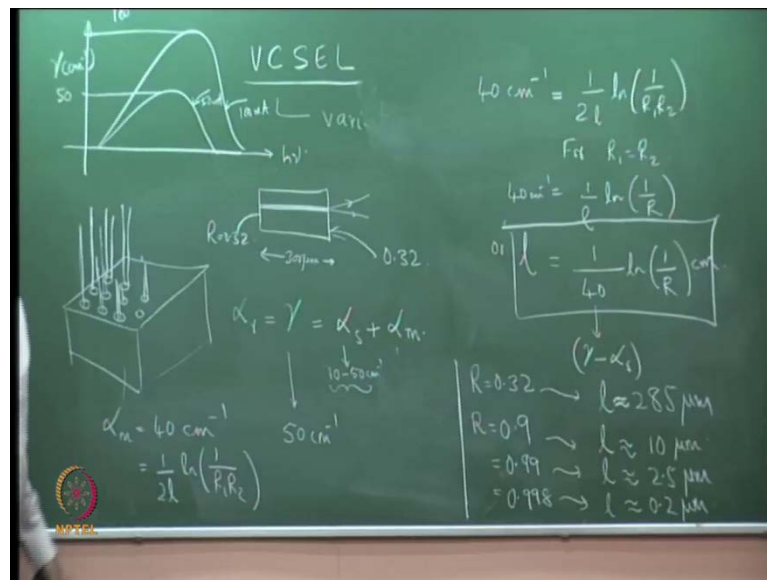 100
γ(cm⁻¹)
50
50mA
100mA
hν
VCSEL
L
R=0.32
←300μm→
0.32
αᵣ = γ = αₛ + αₘ
10-50cm⁻¹
50 cm⁻¹
αₘ = 40 cm⁻¹
= 1/2l ln(1/R₁R₂)
40 cm⁻¹ = 1/2l ln(1/R₁R₂)
For R₁=R₂
40cm⁻¹ = 1/l ln(1/R)
l = 1/40 ln(1/R) cm
(γ-αₛ)
R=0.32 → l≈285 μm
R=0.9 → l ≈ 10 μm
=0.99 → l ≈ 2.5 μm
=0.998 → l ≈ 0.2 μm
NPTEL